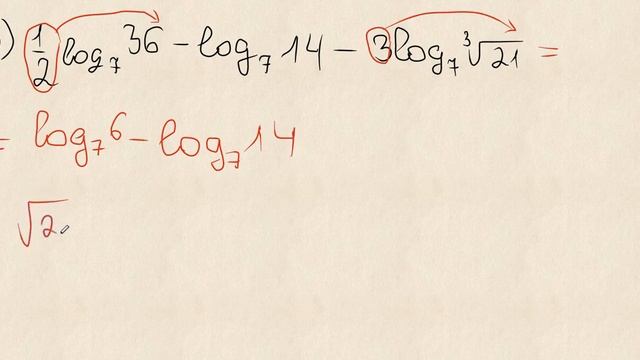 ) 1/2 log₇ 36 - log₇ 14 - 3 log₇ ∛21 =
= log₇ 6 - log₇ 14
√2